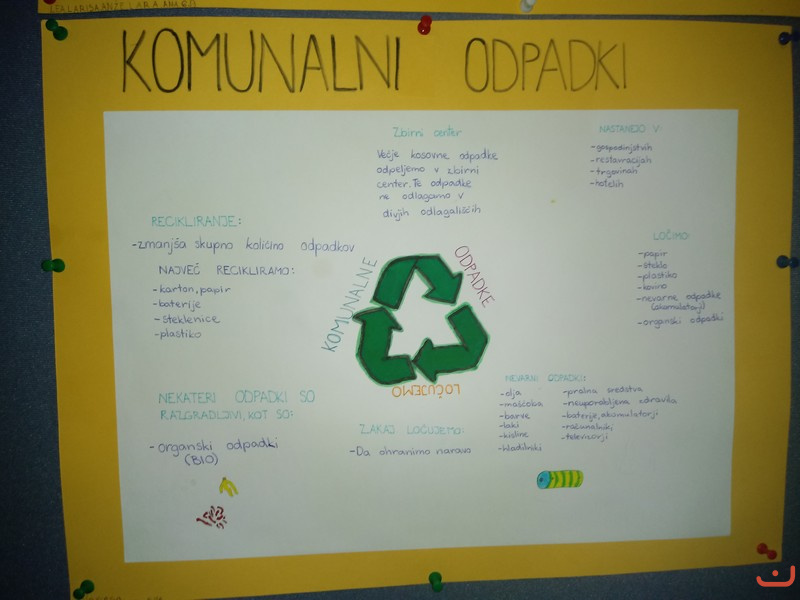 KOMUNALNI ODPADKI
Zbirni center
Večje kosovne odpadke
odpeljemo v zbirni
center. Te odpadke
ne odlagamo v
divjih odlagališčih
NASTANEJO V:
-gospodinjstvih
-restavracijah
-trgovinah
-hotelih
RECIKLIRANJE:
-zmanjša skupno količino odpadkov
NAJVEČ RECIKLIRAMO:
-karton, papir
-baterije
-steklenice
-plastiko
LOČIMO:
-papir
-steklo
-plastiko
-kovino
-nevarne odpadke
(akumulatorji)
-organski odpadki
KOMUNALNE
ODPADKE
LOČUJEMO
NEKATERI ODPADKI SO
RAZGRADLJIVI, KOT SO:
-organski odpadki
(BIO)
ZAKAJ LOČUJEMO:
-Da ohranimo naravo
NEVARNI ODPADKI:
-olja
-maščoba
-barve
-laki
-kisline
-hladilniki
-pralna sredstva
-neuporabljena zdravila
-baterije, akumulatorji
-računalniki
-televizorji